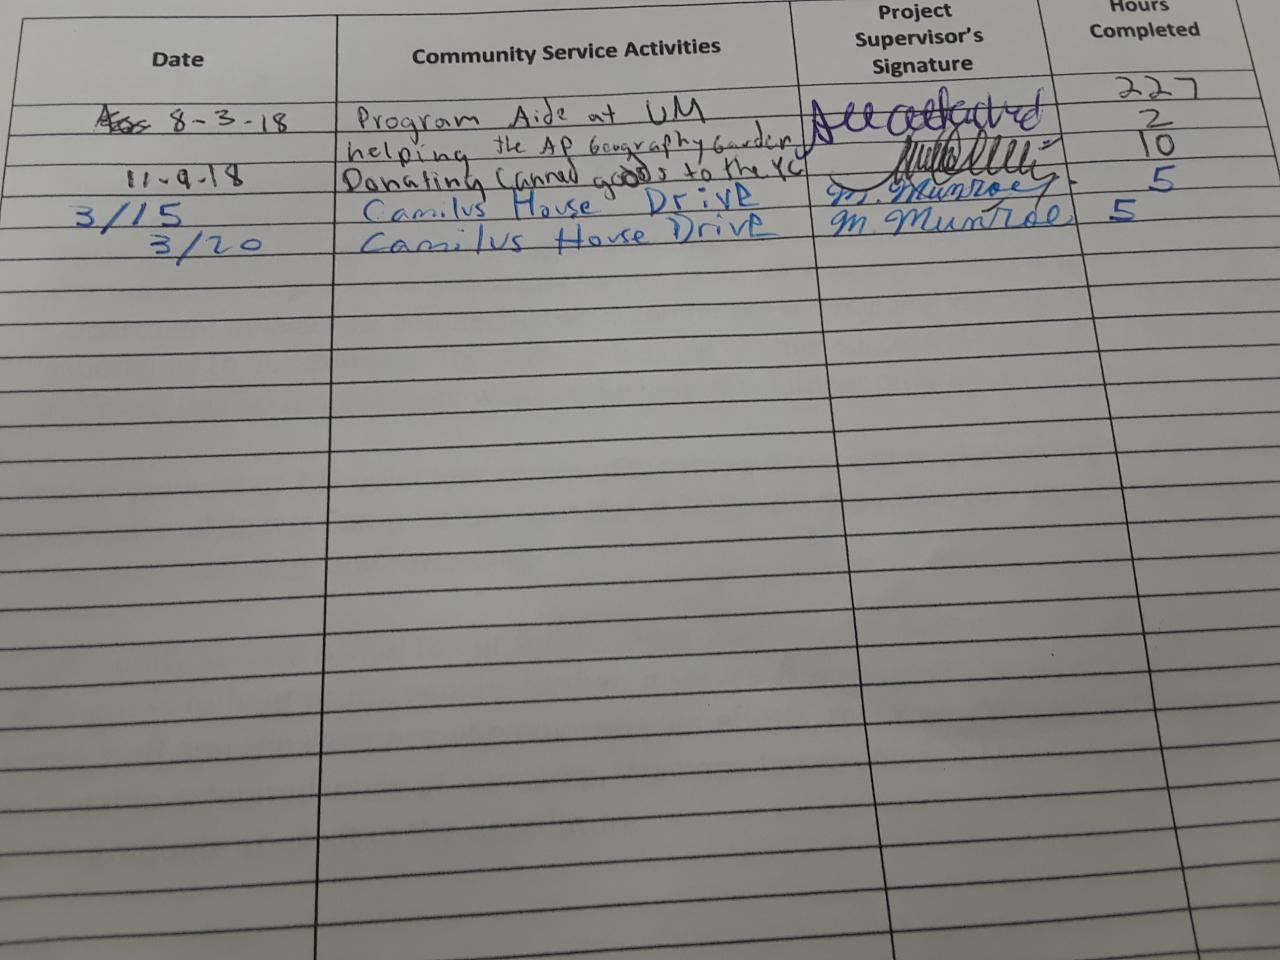 Date Community Service Activities Project Supervisor's Signature Hours Completed
8-3-18 Program Aide at UM See attached 227
helping the AP Geography Garden 2
11-9-18 Donating Canned goods to the YC 10
3/15 Camilus House Drive M. Munroe 5
3/20 Camilus House Drive M. Munroe 5